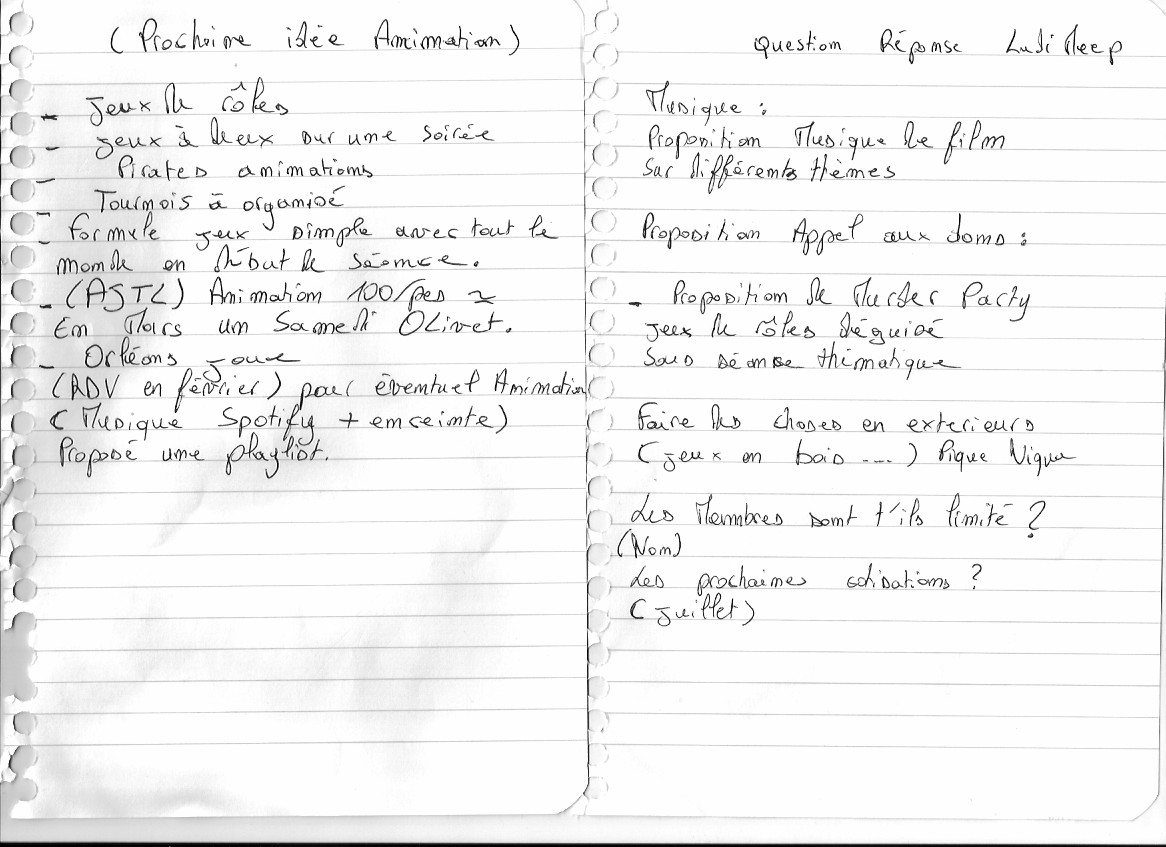 (Prochaine idée Animation)
- Jeux de rôles
- jeux à deux sur une soirée
- Pirates animations
- Tournois à organisé
- formule jeux simple avec tout le
monde en début de séance.
- (ASTL) Animation 100/pes ~
En Mars un Samedi Olivet.
- Orléans joue
(RDV en février) pour éventuel Animation
(Musique Spotify + enceinte)
Proposé une playlist.
Question Réponse Ludi
Musique :
Proposition Musique de film
Sur différents thèmes
Proposition Appel aux dons :
- Proposition de Murder Party
jeux de rôles déguisé
Sous séanse thématique
Faire des choses en exterieurs
(jeux en bois ....) Pique Nique
Les Membres sont t'ils limité ?
(Non)
Les prochaines cotisations ?
(juillet)